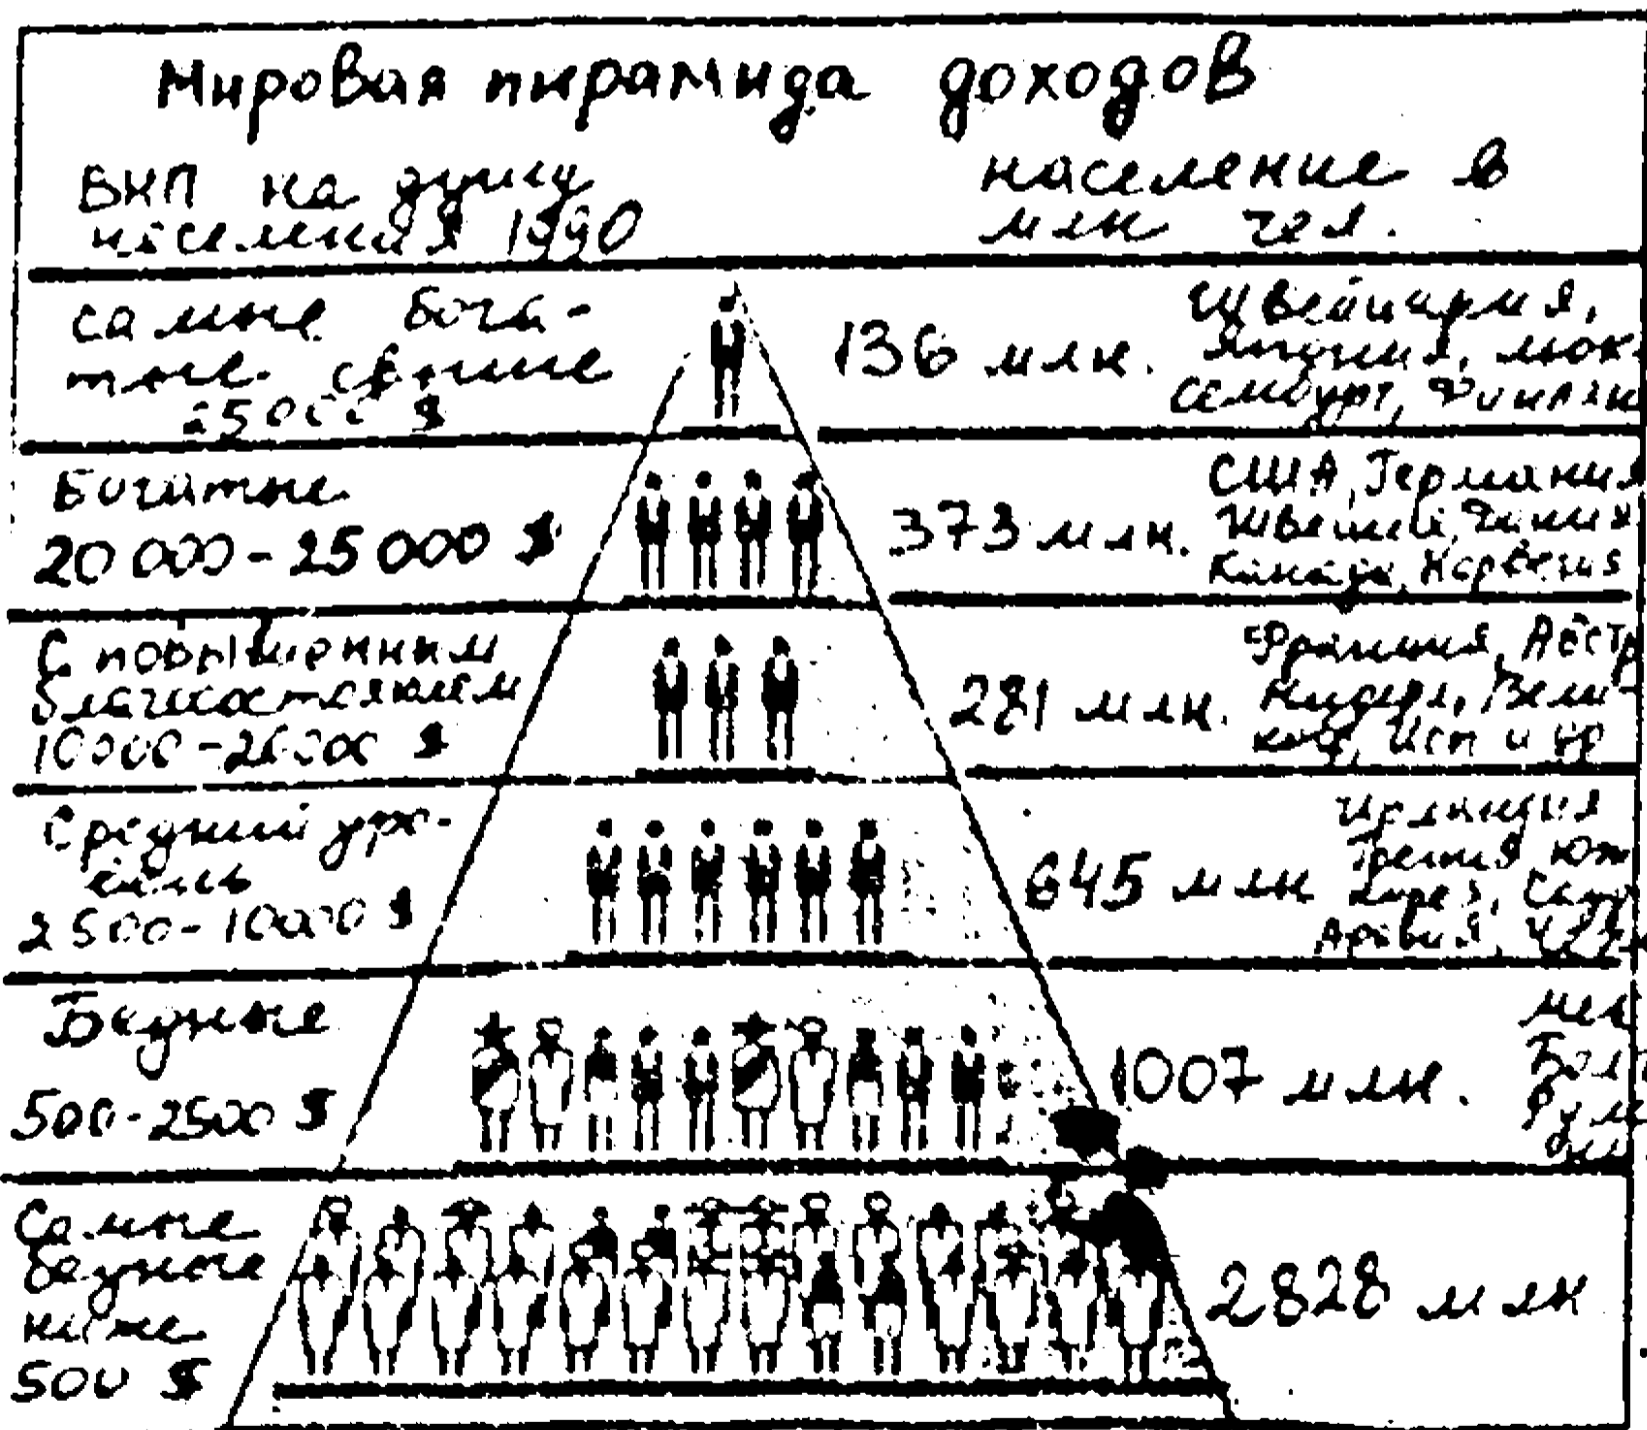 Мировая пирамида доходов
ВНП на душу
населения 1990
население в
млн чел.
самые бога-
тые свыше
25000 $
136 млн.
Швейцария,
Япония, Люк-
сембург, Финлян
Богатые
20 000-25 000 $
373 млн.
США, Германия
Швеция,
Канада, Норвегия
С повышенным
благосостоянием
10000-20000 $
281 млн.
Франция, Австр
Нидерл, Вели-
Исп и др
Средний уро-
вень
2500-10000 $
645 млн
Ирландия
Греция, Юж
Корея, Сауд
Аравия,
Бедные
500-2500 $
1007 млн.
Мек
Бол
Рум
Самые
бедные
ниже
500 $
2828 млн